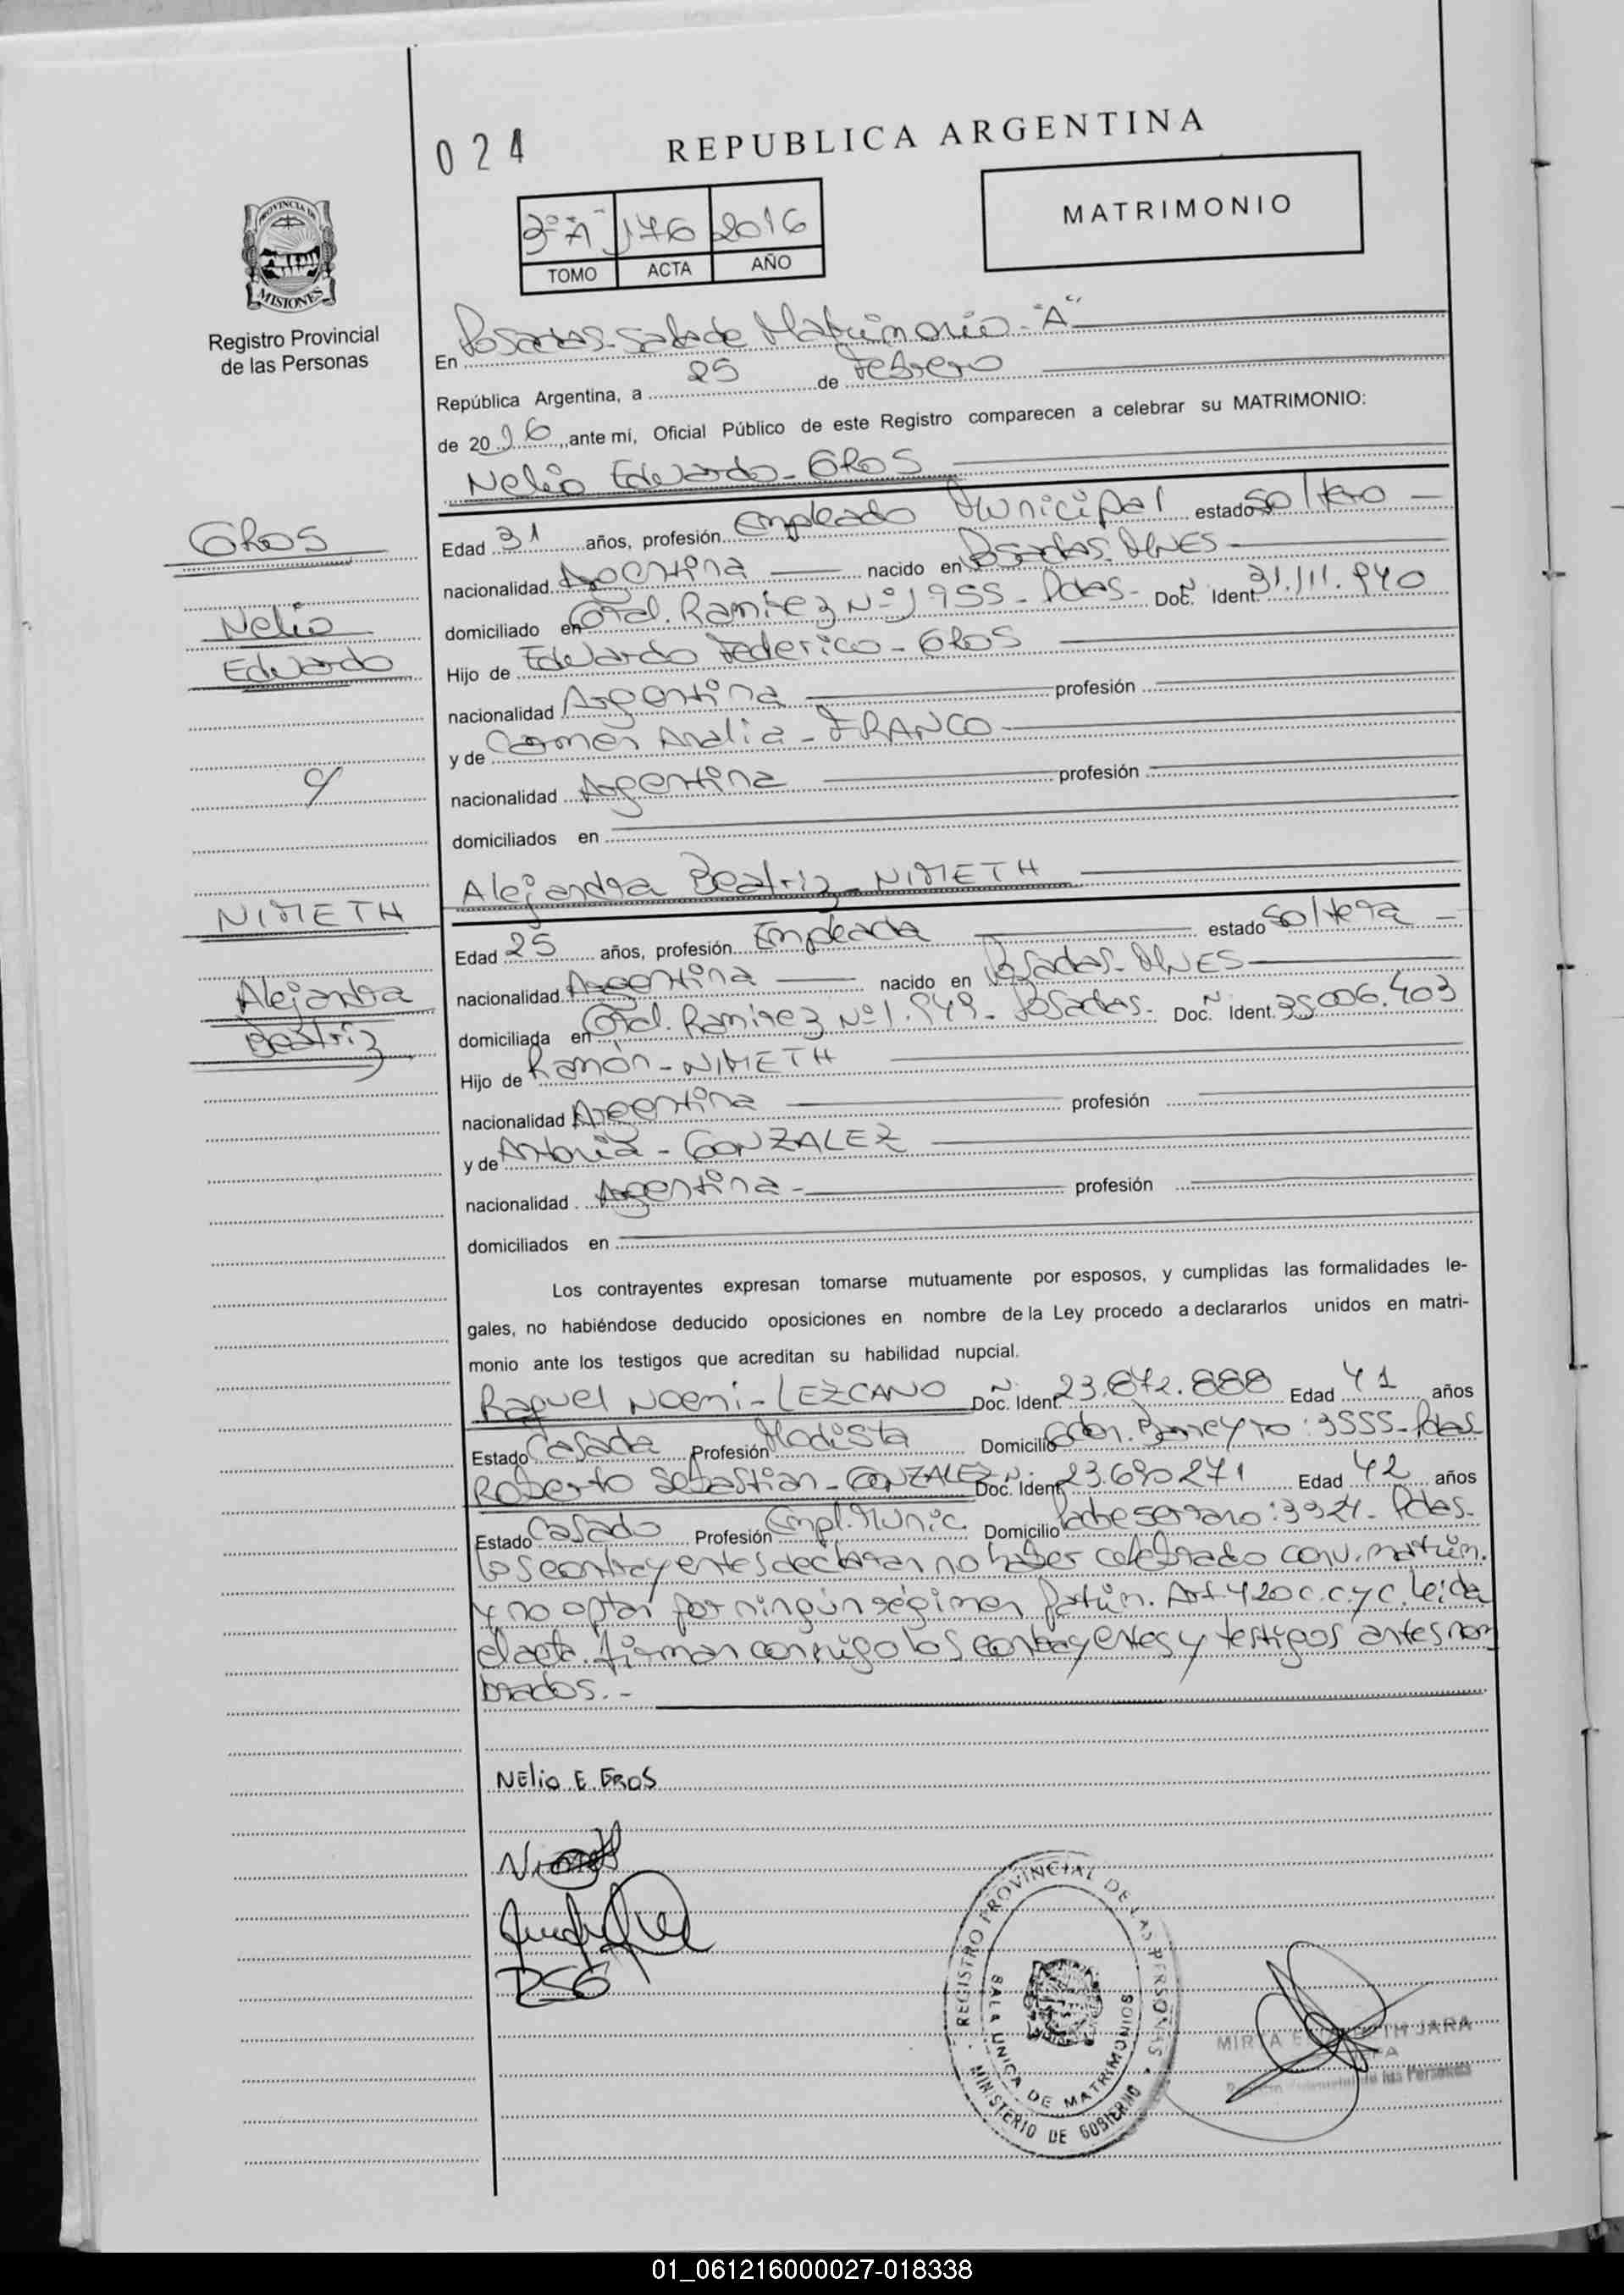 024
REPUBLICA ARGENTINA
3º "A" 176 2016
TOMO ACTA AÑO
MATRIMONIO
PROVINCIA DE
MISIONES
Registro Provincial
de las Personas
En Posadas-Sala de Matrimonio-"A"
República Argentina, a 25 de Febrero
de 2016, ante mí, Oficial Público de este Registro comparecen a celebrar su MATRIMONIO:
Nelio Eduardo-GROS
GROS
Nelio
Eduardo
c/
NIMETH
Alejandra
Beatriz
Edad 31 años, profesión Empleado Municipal estado soltero
nacionalidad Argentina nacido en Posadas-MNES
domiciliado en Gral. Ramirez Nº 1955-Pdas- Doc. Ident. Nº 31.111.940
Hijo de Eduardo Federico-GROS
nacionalidad Argentina profesión
y de Carmen Analia-FRANCO
nacionalidad Argentina profesión
domiciliados en
Alejandra Beatriz-NIMETH
Edad 25 años, profesión Empleada estado soltera
nacionalidad Argentina nacido en Posadas-MNES
domiciliada en Gral. Ramirez Nº 1.949-Posadas- Doc. Ident. N 35.006.403
Hijo de Ramón-NIMETH
nacionalidad Argentina profesión
y de Antonia-GONZALEZ
nacionalidad Argentina- profesión
domiciliados en
Los contrayentes expresan tomarse mutuamente por esposos, y cumplidas las formalidades le-
gales, no habiéndose deducido oposiciones en nombre de la Ley procedo a declararlos unidos en matri-
monio ante los testigos que acreditan su habilidad nupcial.
Raquel Noemi-LEZCANO Doc. Ident. Nº 23.872.888 Edad 41 años
Estado Casada Profesión Modista Domicilio Gdor. Barreyro:3555-Pdas
Roberto Sebastian-GONZALEZ Doc. Ident. Nº 23.690271 Edad 42 años
Estado Casado Profesión Empl. Munic. Domicilio Padre Serrano:3924-Pdas-
Los contrayentes declaran no haber celebrado conv. matrim.
y no optar por ningún régimen patrim. Art. 420 c.c.y c. Leida
el acta firman conmigo los contrayentes y testigos antes nom
brados.-
Nelio E. GROS
RSG
REGISTRO PROVINCIAL DE LAS PERSONAS
SALA UNICA DE MATRIMONIOS
MINISTERIO DE GOBIERNO
MIRTA JARA
de las Personas
01_061216000027-018338